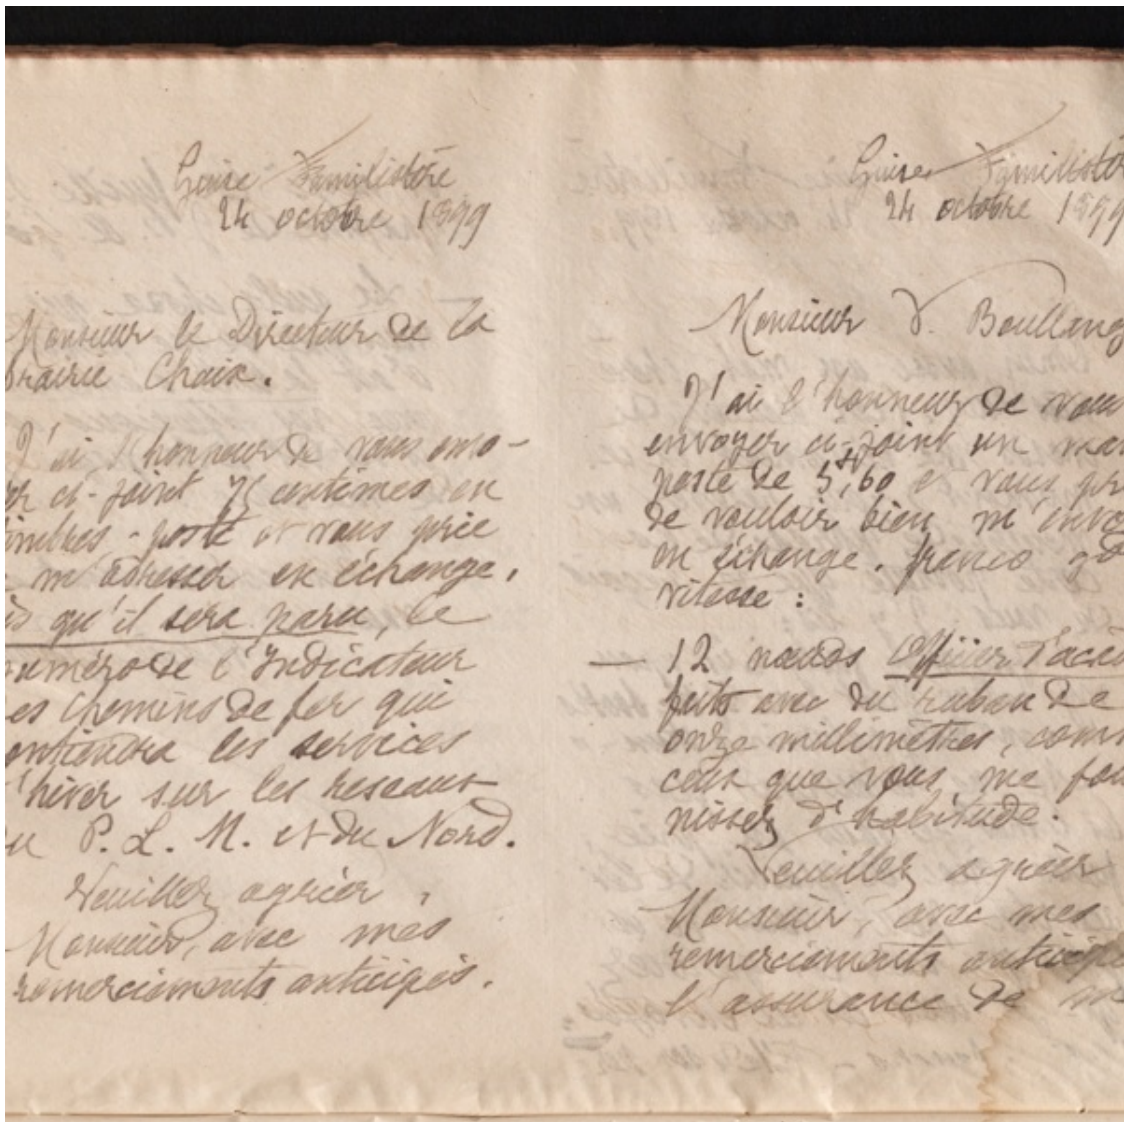 Guise Familistère
24 octobre 1899
Monsieur le Directeur de la
brairie Chaix.
J'ai l'honneur de vous envo-
er ci-joint 75 centimes en
imbres-poste et vous prie
m'adresser en échange,
ès qu'il sera paru, le
numéro de l'Indicateur
es Chemins de fer qui
ontiendra les services
d'hiver sur les réseaux
du P. L. M. et du Nord.
Veuillez agréer,
Monsieur, avec mes
remerciements anticipés.
Guise Familistèr
24 octobre 1899
Monsieur V. Boullang
J'ai l'honneur de vous
envoyer ci-joint un man
poste de 5f,60 et vous pri
de vouloir bien m'envo
en échange, franco gde
vitesse :
— 12 nœuds Officier d'acad
faits avec du ruban de
onze millimètres, comm
ceux que vous me four
nissez d'habitude.
Veuillez agréer
Monsieur, avec mes
remerciements anticipé
l'assurance de m